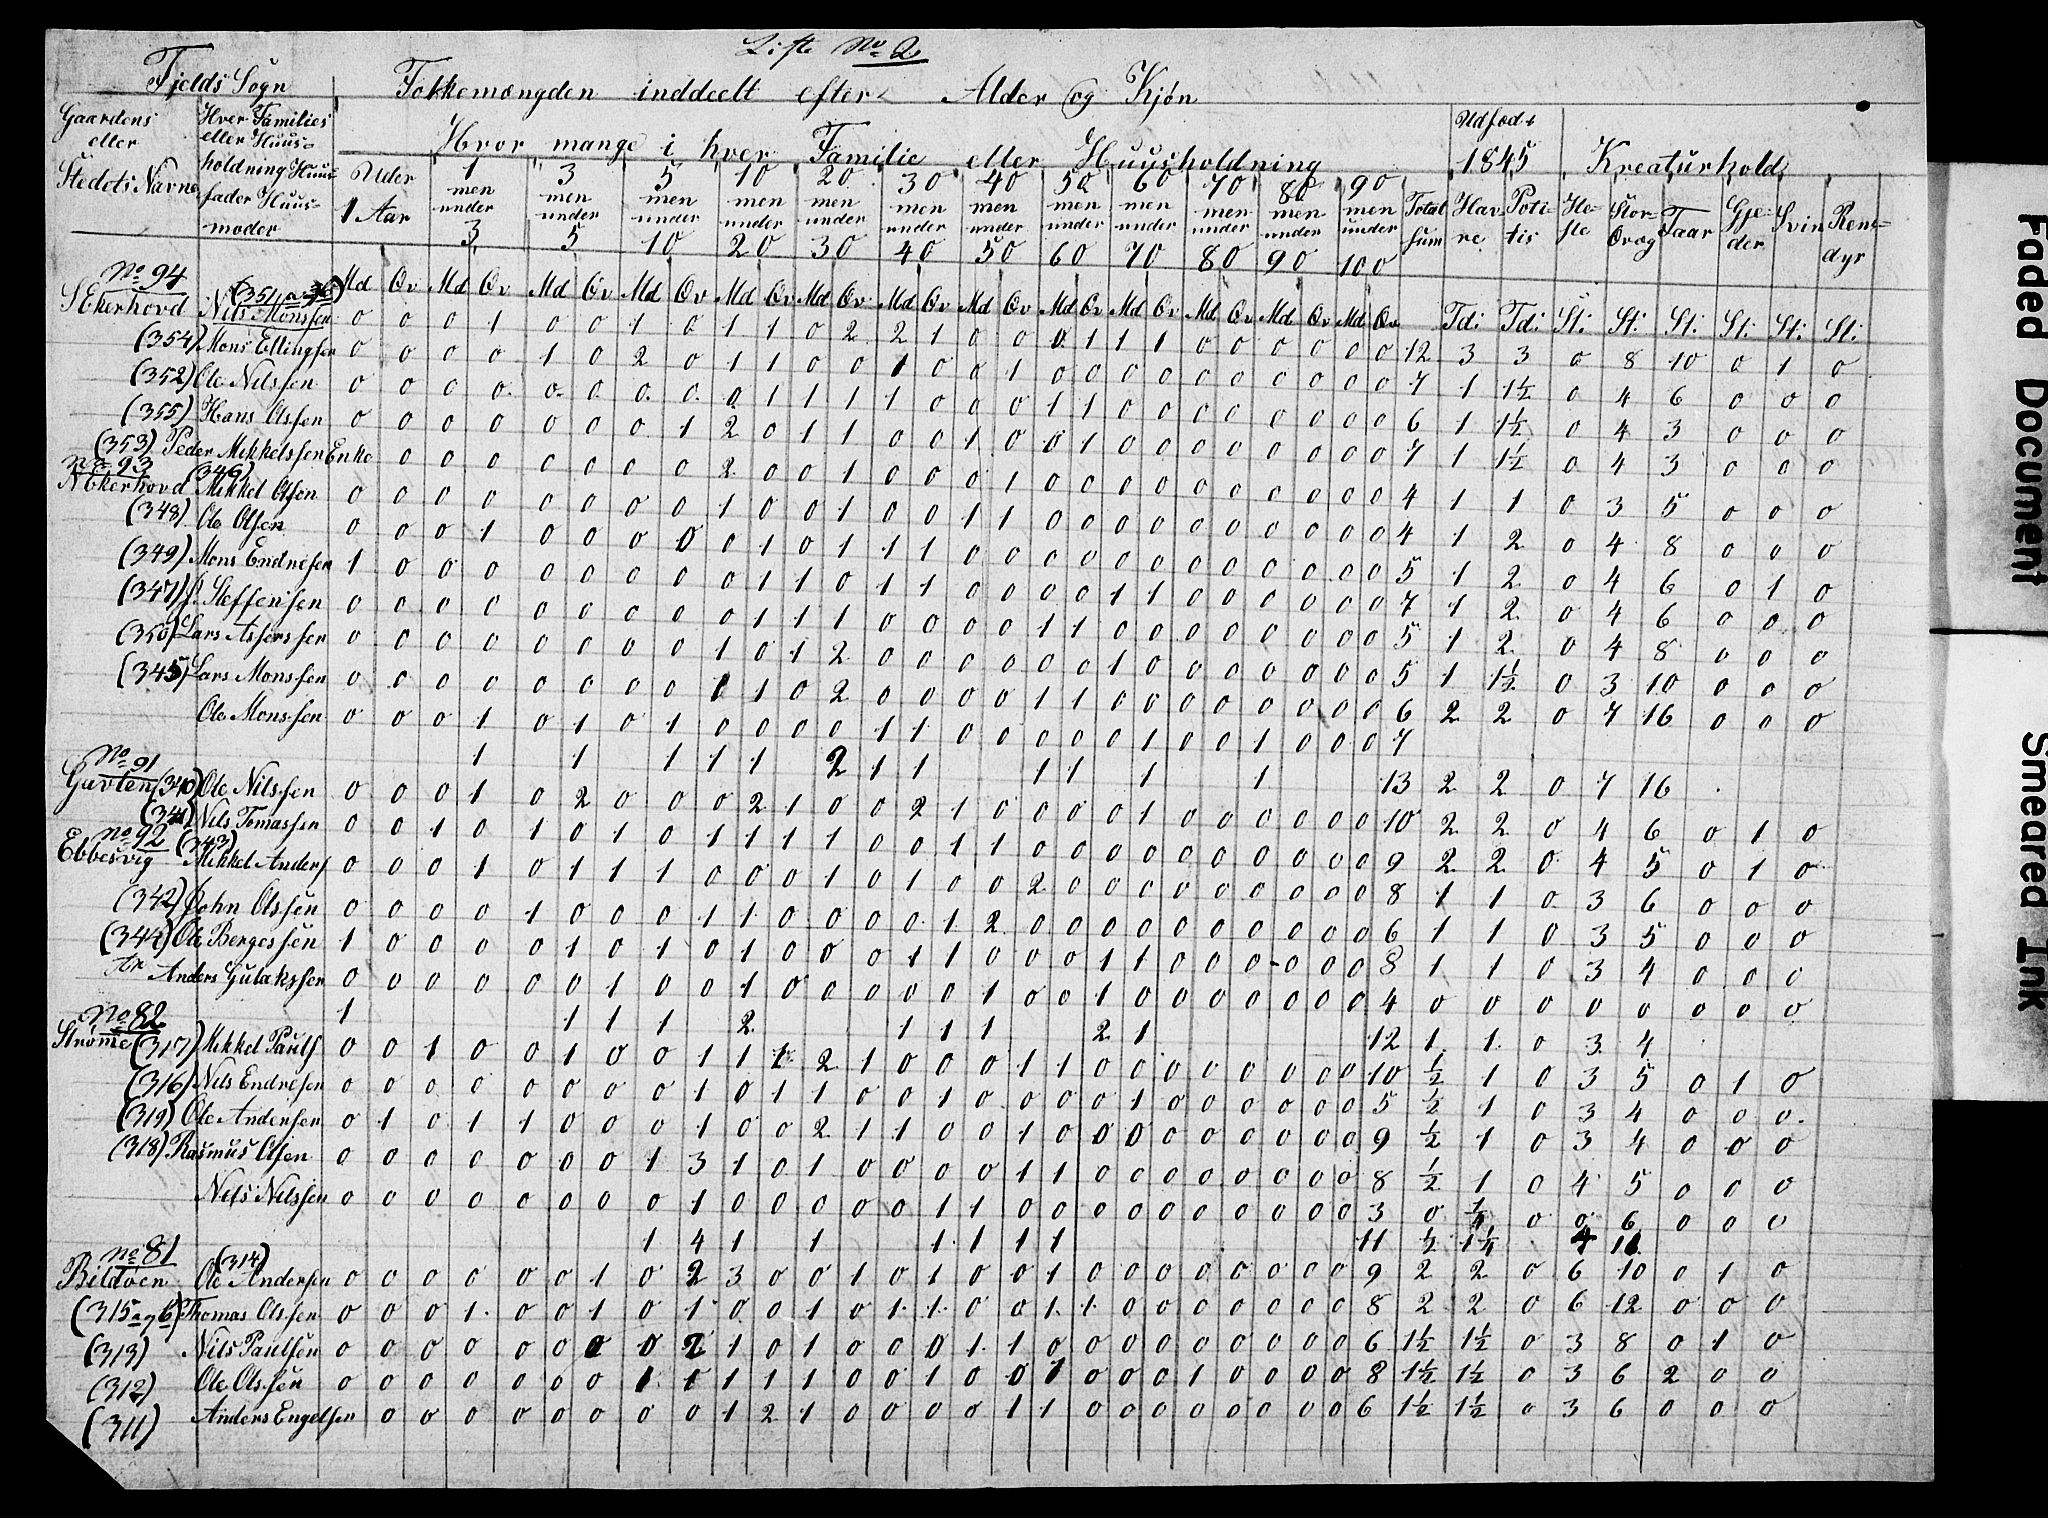 Liste No 2
Fjelds Sogn
Folkemængden inddeelt efter Alder og Kjøn
Gaardens eller Stedets Navne
Hver Families eller Huusholdning Huusfader Huusmoder
Hvor mange i hver Familie eller Huusholdning
Udsød + 1845
Kreaturhold
Under 1 Aar
1 men under 3
3 men under 5
5 men under 10
10 men under 20
20 men under 30
30 men under 40
40 men under 50
50 men under 60
60 men under 70
70 men under 80
80 men under 90
90 men under 100
Total Sum
Havre
Potitis
Heste
Storqvæg
Faar
Gjeder
Svin
Rensdyr
Md Qv Md Qv Md Qv Md Qv Md Qv Md Qv Md Qv Md Qv Md Qv Md Qv Md Qv Md Qv Md Qv Tdi Tdi St: St: St: St: St: St:
No 94
SEkerhovd Nils Monssen 0 0 0 1 0 0 1 0 1 1 0 2 2 1 0 0 0 1 1 1 0 0 0 0 0 0 12 3 3 0 8 10 0 1 0
(354) Mons Ellingsen 0 0 0 0 1 0 2 0 1 1 0 0 1 0 0 1 0 0 0 0 0 0 0 0 0 0 7 1 1½ 0 4 6 0 0 0
(352) Ole Nilssen 0 0 0 0 0 0 0 0 0 1 1 1 1 0 0 0 1 1 0 0 0 0 0 0 0 0 6 1 1½ 0 4 3 0 0 0
(355) Hans Olssen 0 0 0 0 0 0 0 1 2 0 1 1 0 0 1 0 0 1 0 0 0 0 0 0 0 0 7 1 1½ 0 4 3 0 0 0
(353) Peder Mikkelssen Enke 0 0 0 0 0 0 0 2 0 0 1 0 0 0 1 0 0 0 0 0 0 0 0 0 0 4 1 1 0 3 5 0 0 0
No 93
NEkerhovd (346) Mikkel Olsen 0 0 0 0 0 0 0 0 1 0 0 1 0 0 1 1 0 0 0 0 0 0 0 0 0 0 4 1 2 0 4 8 0 0 0
(348) Ole Olsen 0 0 0 1 0 0 0 0 0 1 0 1 1 1 0 0 0 0 0 0 0 0 0 0 0 0 5 1 2 0 4 6 0 1 0
(349) Mons Endresen 1 0 0 0 0 0 0 0 0 1 1 0 1 1 0 0 0 1 1 0 0 0 0 0 0 0 7 1 2 0 4 6 0 0 0
(347) J. Steffensen 0 0 0 0 0 0 0 0 0 1 1 1 0 0 0 0 1 1 0 0 0 0 0 0 0 0 5 1 2 0 4 8 0 0 0
(350) Lars Assersen 0 0 0 0 0 0 0 0 1 0 1 2 0 0 0 0 0 0 1 0 0 0 0 0 0 0 5 1 1½ 0 3 10 0 0 0
(345) Lars Monssen 0 0 0 0 0 0 0 0 1 1 0 2 0 0 0 0 1 1 0 0 0 0 0 0 0 0 6 2 2 0 7 16 0 0 0
Ole Monssen 0 0 0 1 0 1 0 1 0 0 0 0 1 1 0 0 0 0 0 1 0 0 1 0 0 0 7
1 1 1 1 1 2 1 1 1 1 1 1 13 2 2 0 7 16
No 91
Gavlen (340) Ole Nilssen 0 0 0 1 0 2 0 0 0 2 1 0 0 2 1 0 0 0 0 1 0 0 0 0 0 0 10 2 2 0 4 6 0 1 0
(341) Nils Tomassen 0 0 1 0 1 0 1 0 1 1 1 1 0 0 1 1 0 0 0 0 0 0 0 0 0 0 9 2 2 0 4 5 0 1 0
No 92
Ebbesvig (343) Mikkel Anders 0 0 0 1 0 1 1 1 0 0 0 1 0 1 0 0 2 0 0 0 0 0 0 0 0 0 8 1 1 0 3 6 0 0 0
(342) John Olssen 0 0 0 0 1 0 0 0 1 1 0 0 0 0 1 2 0 0 0 0 0 0 0 0 0 0 6 1 1 0 3 5 0 0 0
(344) Ole Bergessen 1 0 0 0 0 1 0 1 0 1 0 0 0 1 1 0 0 0 1 1 0 0 0 0 0 0 8 1 1 0 3 4 0 0 0
Anders Gulakssen 0 0 0 0 0 0 1 0 0 1 0 0 0 0 0 1 0 0 1 0 0 0 0 0 0 0 4 0 0 0 0 0 0 0 0
1 1 1 1 2 1 1 1 2 1 12 1 1 0 3 4
No 82
Strømme (317) Mikkel Pauls 0 0 1 0 0 1 0 0 1 1 1 2 1 0 0 0 1 1 0 0 0 0 0 0 0 0 10 ½ 1 0 3 5 0 1 0
(316) Nils Endresen 0 0 0 0 0 0 0 0 1 0 1 1 0 0 1 0 0 0 0 1 0 0 0 0 0 0 5 ½ 1 0 3 4 0 0 0
(319) Ole Andersen 0 1 0 1 1 0 0 0 1 0 0 2 1 1 0 0 1 0 0 0 0 0 0 0 0 0 9 ½ 1 0 3 4 0 0 0
(318) Rasmus Olsen 0 0 0 0 0 0 0 1 3 1 0 1 0 0 0 0 1 1 0 0 0 0 0 0 0 0 8 ½ 1 0 4 5 0 0 0
Nels Nilssen 0 0 0 0 0 0 0 0 1 0 0 0 0 0 1 1 0 0 0 0 0 0 0 0 0 0 3 0 ¼ 0 0 6 0 0 0
1 4 1 1 1 1 1 1 11 ½ 1¼ 4 11
No 81
Bildøen (314) Ole Andersen 0 0 0 0 0 0 1 0 2 3 0 0 1 0 1 0 0 1 0 0 0 0 0 0 0 0 9 2 2 0 6 10 0 1 0
(315 a og b) Thomas Olssen 0 0 0 1 0 0 1 0 1 0 0 1 0 1 1 0 0 1 1 0 0 0 0 0 0 0 8 2 2 0 6 12 0 0 0
(313) Nils Paulsen 0 0 0 0 0 0 0 0 2 1 0 1 0 0 0 1 1 0 0 0 0 0 0 0 0 0 6 1½ 1½ 0 3 8 0 1 0
(312) Ole Olssen 0 0 0 0 0 0 0 1 1 1 1 1 0 0 1 0 0 1 0 0 0 1 0 0 0 0 8 1½ 1½ 0 3 6 2 0 0
(311) Anders Engelsen 0 0 0 0 0 0 0 0 1 2 1 0 0 0 0 1 1 0 0 0 0 0 0 0 0 6 1½ 1½ 0 3 6 0 0 0
Faded Document
Smeared Ink